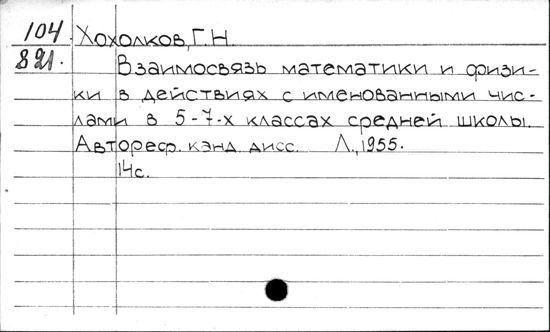 104 Хохолков, Г.Н.
821. Взаимосвязь математики и физи-
ки в действиях с именованными чис-
лами в 5-7-х классах средней школы.
Автореф. канд. дисс. Л., 1955.
14с.